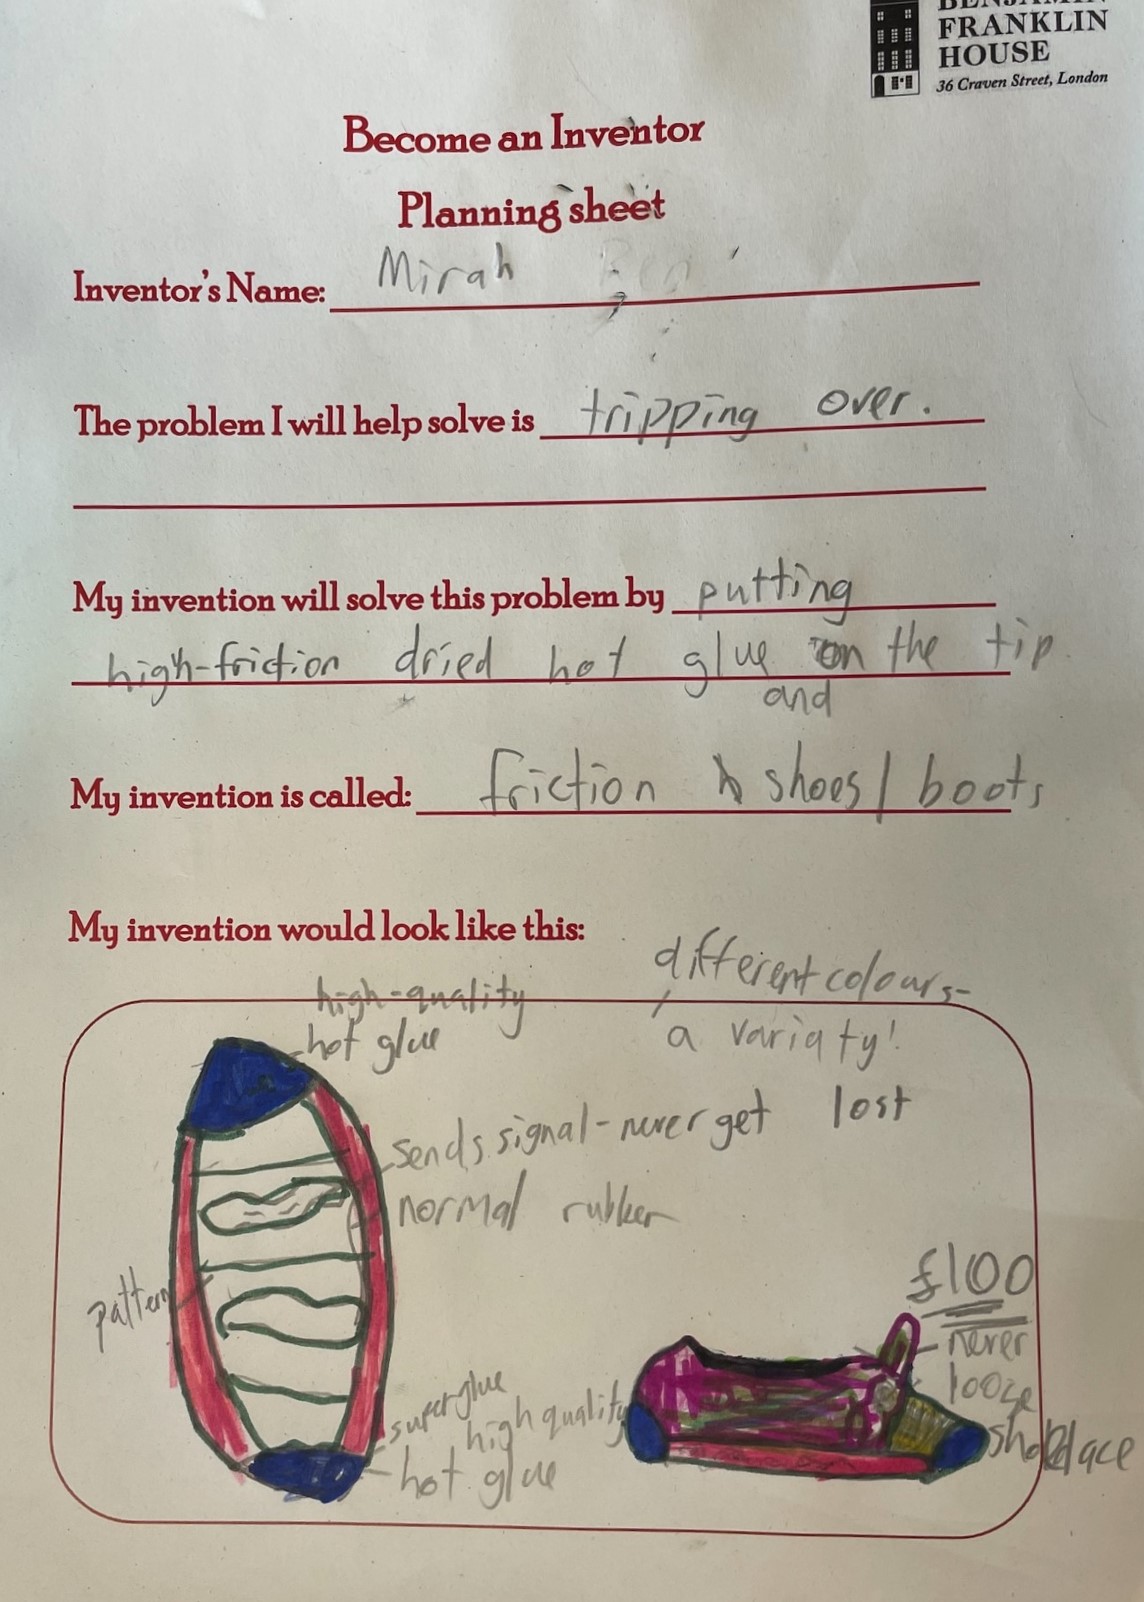 BENJAMIN
FRANKLIN
HOUSE
36 Craven Street, London
Become an Inventor
Planning sheet
Inventor's Name: Mirah Ben
The problem I will help solve is tripping over.
My invention will solve this problem by putting
high-friction dried hot glue on the tip.
and
My invention is called: friction shoes/boots
My invention would look like this:
different colours-
a variaty!
high-quality
hot glue
sends signal-never get lost
normal rubber
pattern
£100
never
looze
shoelace
superglue
high quality
hot glue